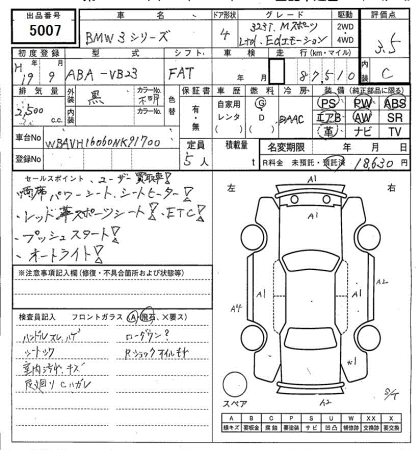 出品番号 車名 ドア形状 グレード 駆動 評価点
5007 BMW 3シリーズ 4 323i Mスポーツ Ltd, Edエモーション 2WD 4WD 3.5
初度登録 型式 シフト 車検 走行(km・マイル) 内装
H19年9月 ABA-VB23 FAT 年 月 87510 C
排気量 外装 色 カラーNo. 色替 保証書 車歴 燃料 冷房 装備(純正部品に限る)
2,500 c.c. 黒 有・無 自家用 レンタ G D AAC PS PW ABS
エアB AW SR
革 ナビ TV
車台No WBAVH16060NK91700
登録No
定員 5人 積載量 t 名変期限 年 月 日
R料金 未預託・預託済 18,630 円
セールスポイント ユーザー買取車!
両席パワーシート、シートヒーター!
レッド革スポーツシート! ETC!
プッシュスタート!
オートライト!
※注意事項記入欄(修復・不具合箇所および状態等)
検査員記入 フロントガラス(A・飛石、X要ス)
ハンドルスレ ローダウン?
室内汚れ キズ
左 右
A1
A1
A1
A2
W1
A2
スペア
A B C P S U W X XX X
線キズ 要板金 腐蝕 要塗装 サビ 凹凸 補修跡 交換跡 要交換